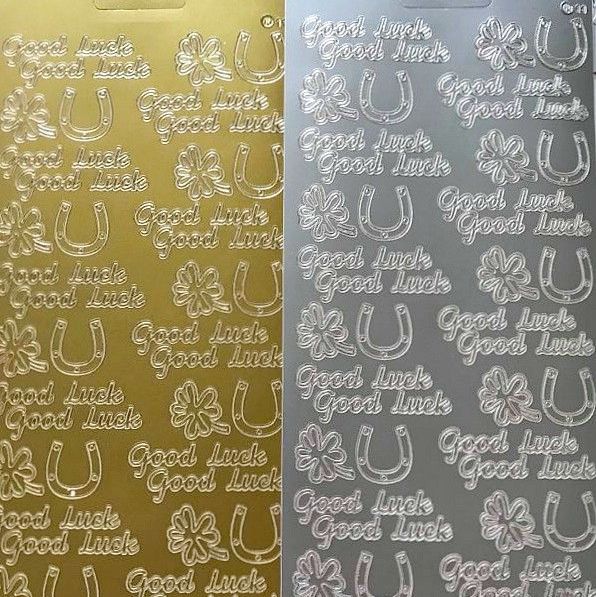 Good Luck
Good Luck
Good Luck
Good Luck
Good Luck
Good Luck
Good Luck
Good Luck
Good Luck
Good Luck
Good Luck
Good Luck
Good Luck
Good Luck
Good Luck
Good Luck
Good Luck
Good Luck
Good Luck
Good Luck
Good Luck
Good Luck
Good Luck
Good Luck
Good Luck
Good Luck
Good Luck
Good Luck
Good Luck
Good Luck
Good Luck
Good Luck
Good Luck
Good Luck
Good Luck
Good Luck
Good Luck
Good Luck
Good Luck